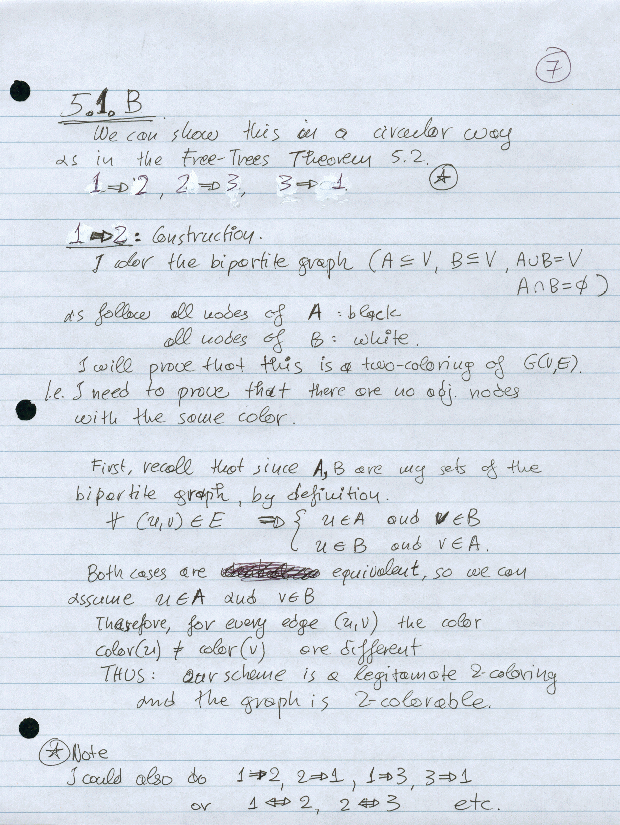 7
5.1.B
We can show this in a circular way
as in the Free-Trees Theorem 5.2.
1⇒2, 2⇒3, 3⇒1 ★
1⇒2: Construction.
I color the bipartite graph (A⊆V, B⊆V, A∪B=V
A∩B=∅)
as follow all nodes of A : black
all nodes of B : white.
I will prove that this is a two-coloring of G(V,E).
I.e. I need to prove that there are no adj. nodes
with the same color.
First, recall that since A, B are my sets of the
bipartite graph, by definition.
∀ (u,v) ∈ E ⇒ { u∈A and v∈B
u∈B and v∈A.
Both cases are equivalent, so we can
assume u∈A and v∈B
Therefore, for every edge (u,v) the color
color(u) ≠ color(v) are different
THUS: our scheme is a legitamate 2-coloring
and the graph is 2-colorable.
★ Note
I could also do 1⇒2, 2⇒1, 1⇒3, 3⇒1
or 1⇔2, 2⇔3 etc.